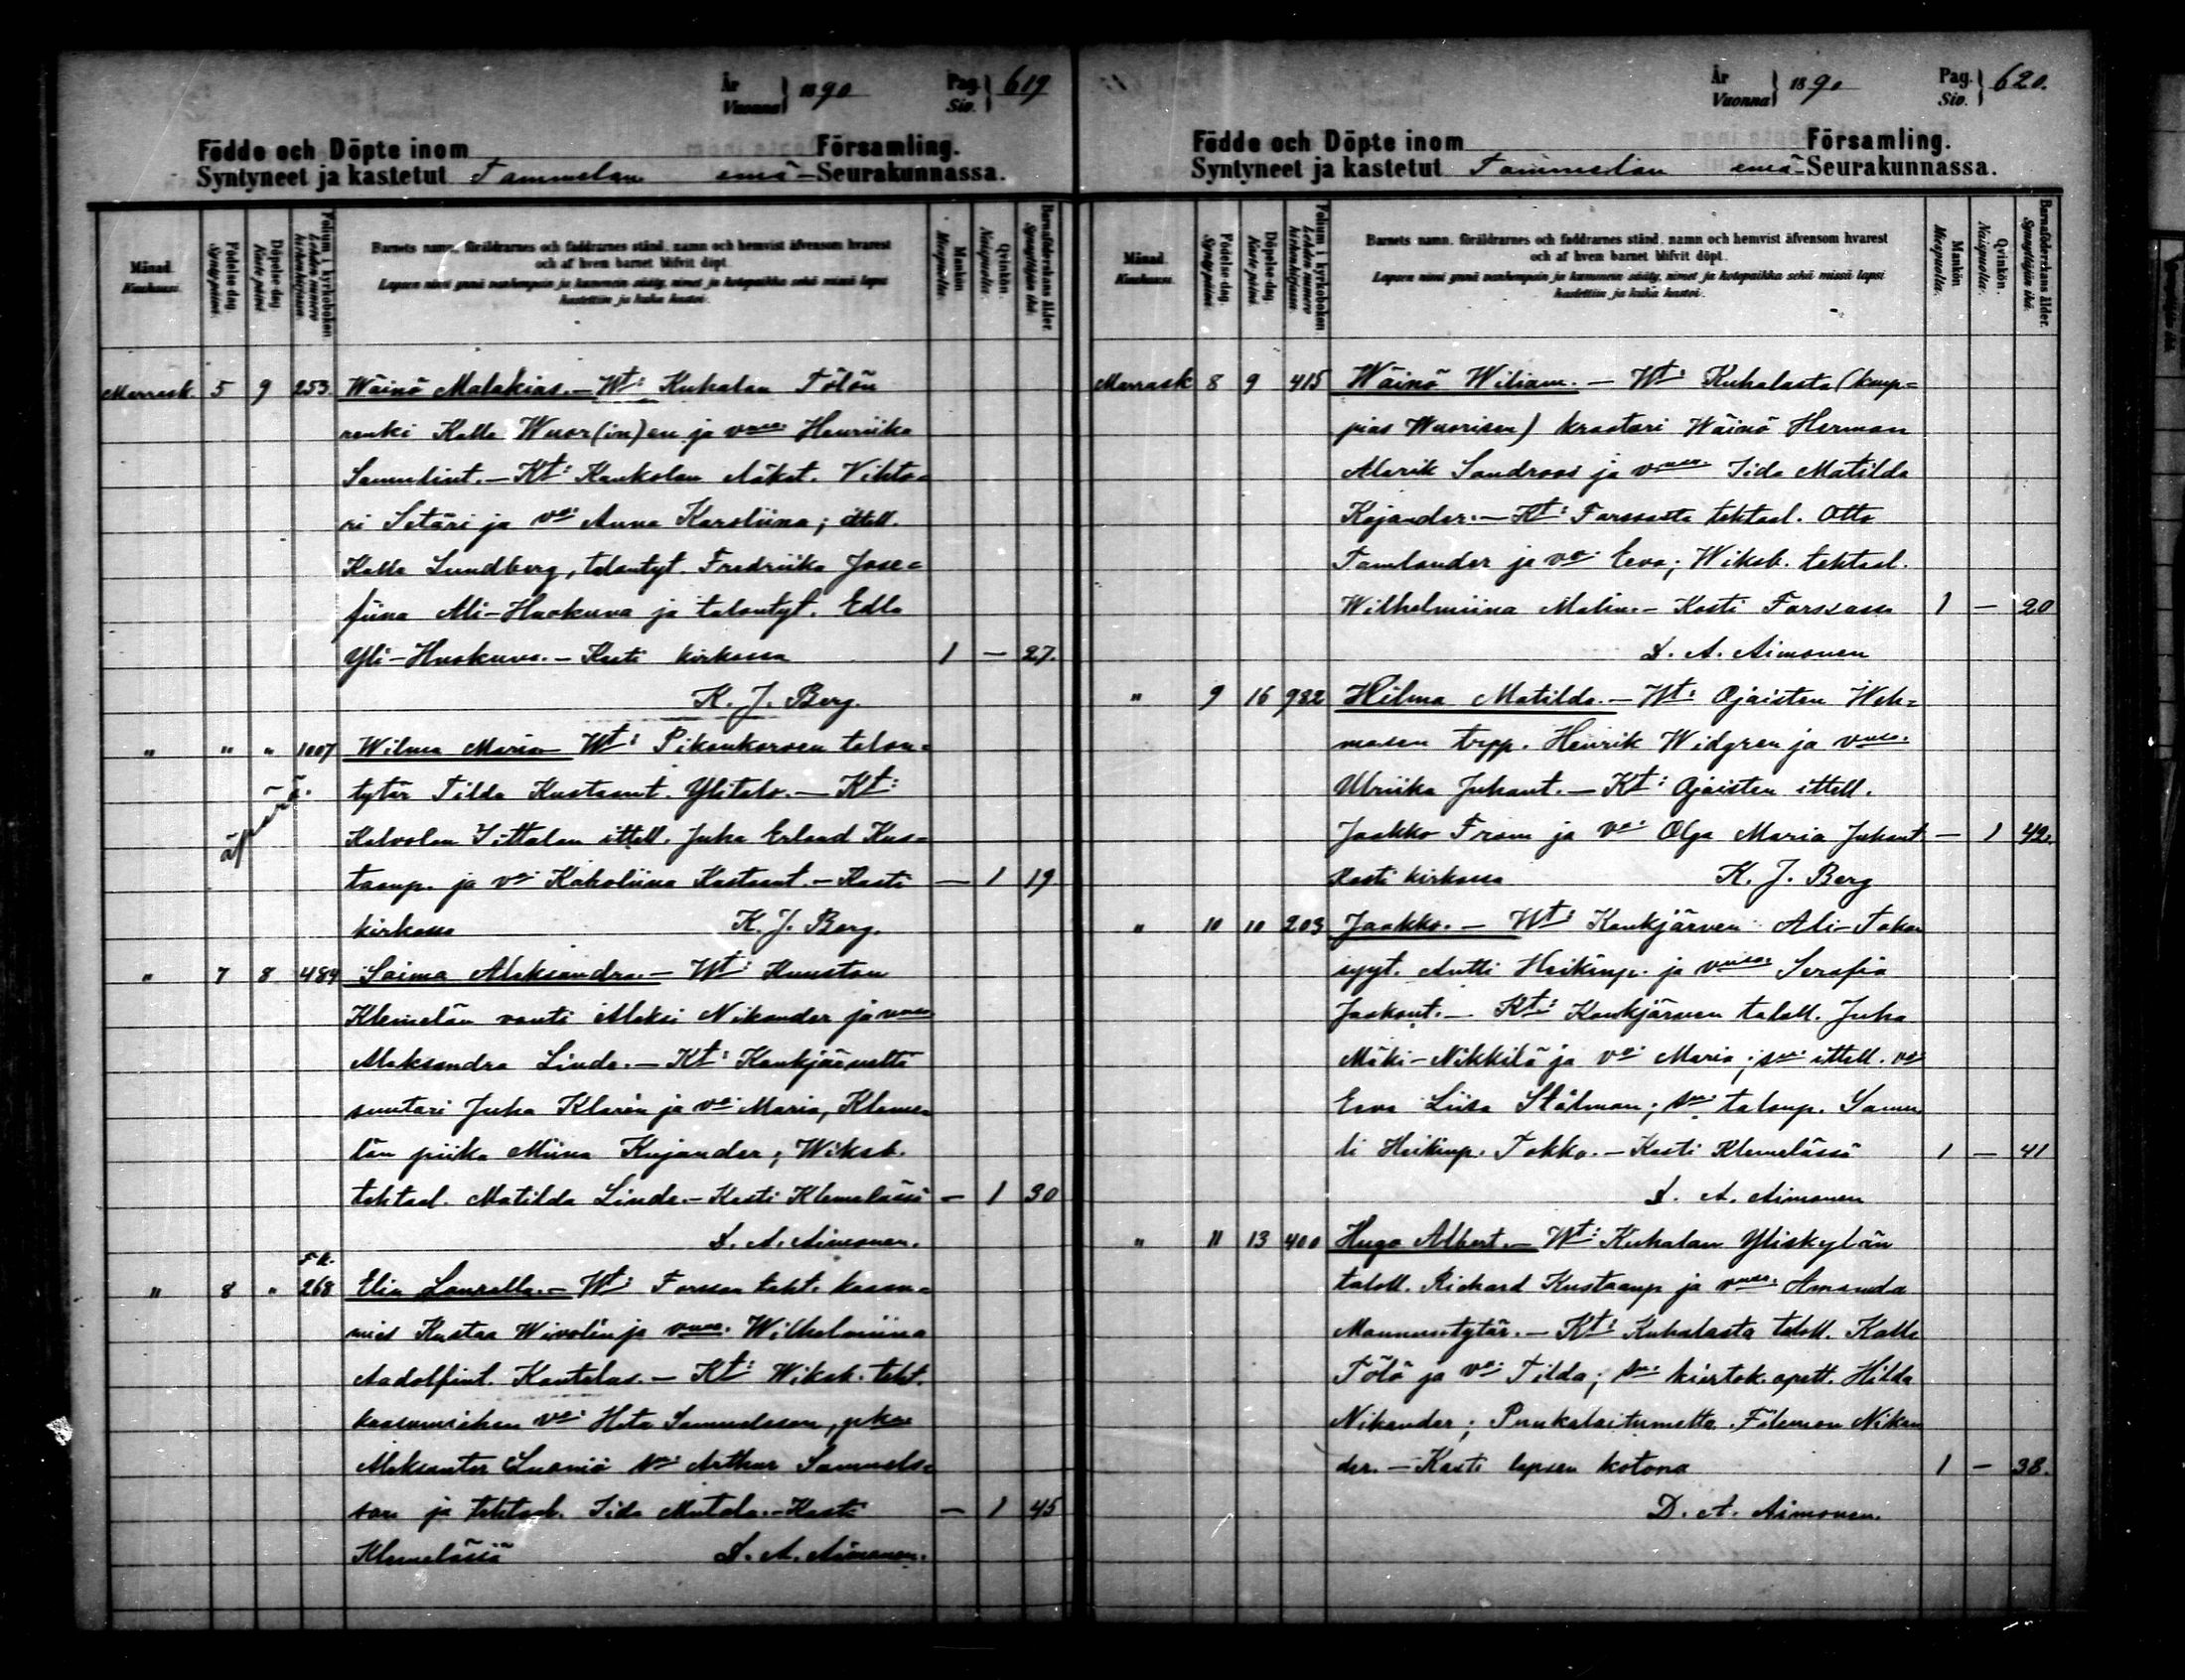 År Vuonna } 1890 Pag. Siv. } 619
Födde och Döpte inom Församling.
Syntyneet ja kastetut Tammelan emä-Seurakunnassa.
Månad. Kuukausi.
Födelse dag. Syntypäivä.
Döpelse dag. Kastepäivä.
Folium i kyrkoboken. Lehden numero kirkonkirjassa.
Barnets namn, föräldrarnes och faddrarnes stånd, namn och hemvist äfvensom hvarest
och af hvem barnet blifvit döpt.
Lapsen nimi ynnä vanhempain ja kummein sääty, nimet ja kotopaikka sekä missä lapsi
kastettiin ja kuka kastoi.
Mankön. Miespuolia.
Qvinkön. Naispuolia.
Barnaföderskans ålder. Synnyttäjän ikä.
Marrask. 5 9 253. Wäinö Malakias. — Wt: Kuhalan Tölön
renki Kalle Wuor(in)en ja vmsa. Henriika
Samulint. — Kt: Kaukolan Mäket. Vihto-
ri Setäri ja vo: Anna Karoliina; ittell.
Kalle Lundberg, talontyt. Fredriika Jose-
fiina Ali-Haokuva ja talontyt. Edla
Yli-Huokuva. — Kasti kirkossa 1 — 27.
K. J. Berg.
" " " 1007 Wilma Maria Wt: Pikonkorven talon-
äpärä. tytär Tilda Kustaant. Ylitalo. — Kt:
Kalvolan Iittalan ittell. Juha Erland Kus-
taanp. ja vo: Karoliina Kustaant. — Kasti — 1 19
kirkossa K. J. Berg.
" 7 8 484 Saima Aleksandra. — Wt: Kuuston
Klemelän vouti Aleksi Nikander ja vmsa
Aleksandra Linda. — Kt: Kaukjärveltä
suutari Juha Klarén ja vo: Maria, Kleme-
län piika Miina Kujander; Wiksb.
tehtaal. Matilda Linda. — Kasti Klemelässä — 1 30
D. A. Aimonen.
F.k.
" 8 " 268 Elin Laurella. — Wt: Forssan teht. kaasu-
mies Kustaa Wivolin ja vmsa. Wilhelmiina
Aadolfint. Kantelus. — Kt: Wiksb. teht.
kaasumiehen vo: Heta Samuelsson,
Aleksanter Arthur Samuels-
son ja tehtaal. Iida Matala. — Kasti — 1 45
Klemelässä D. A. Aimonen.
År Vuonna } 1890 Pag. Siv. } 620.
Födde och Döpte inom Församling.
Syntyneet ja kastetut Tammelan emä-Seurakunnassa.
Månad. Kuukausi.
Födelse dag. Syntypäivä.
Döpelse dag. Kastepäivä.
Folium i kyrkoboken. Lehden numero kirkonkirjassa.
Barnets namn, föräldrarnes och faddrarnes stånd, namn och hemvist äfvensom hvarest
och af hvem barnet blifvit döpt.
Lapsen nimi ynnä vanhempain ja kummein sääty, nimet ja kotopaikka sekä missä lapsi
kastettiin ja kuka kastoi.
Mankön. Miespuolia.
Qvinkön. Naispuolia.
Barnaföderskans ålder. Synnyttäjän ikä.
Marrask 8 9 415 Wäinö Wiliam. — Wt: Kuhalasta (kaup-
pias Wuorisen) kraatari Wäinö Herman
Alarik Sandroos ja vmsa Iida Matilda
Kajander. — Kt: Forssasta tehtaal. Otto
Tamlander ja vo: Eeva; Wiksb. tehtaal.
Wilhelmiina Malin. — Kasti Forssassa 1 — 20
D. A. Aimonen
" 9 16 982 Hilma Matilda. — Wt: Ojaisten Weh-
masen torpp. Henrik Widgren ja vmsa.
Ulriika Juhant. — Kt: Ojaisten ittell.
Jaakko From ja vo: Olga Maria Juhant — 1 42.
Kasti kirkossa K. J. Berg
" 10 10 203 Jaakko. — Wt: Kaukjärven Ali-Tokon
syyt. Antti Heikinp. ja vmsa. Serafia
Jaakont. — Kt: Kaukjärven taloll. Juha
Mäki-Nikkilä ja vo: Maria; sm: ittell. vo:
Eeva Liisa Stålman; sm: talonp. Samu
li Heikinp. Tokko. — Kasti Klemelässä 1 — 41
D. A. Aimonen
" 11 13 400 Hugo Albert. — Wt: Kuhalan Yliskylän
taloll. Rickard Kustaanp ja vmsa. Amanda
Maununtytär. — Kt: Kuhalasta taloll. Kalle
Tölö ja vo: Tilda; sm: kiertok. opett. Hilda
Nikander; Punkalaitumelta Filemon Nikan
der. — Kasti lapsen kotona 1 — 38.
D. A. Aimonen.